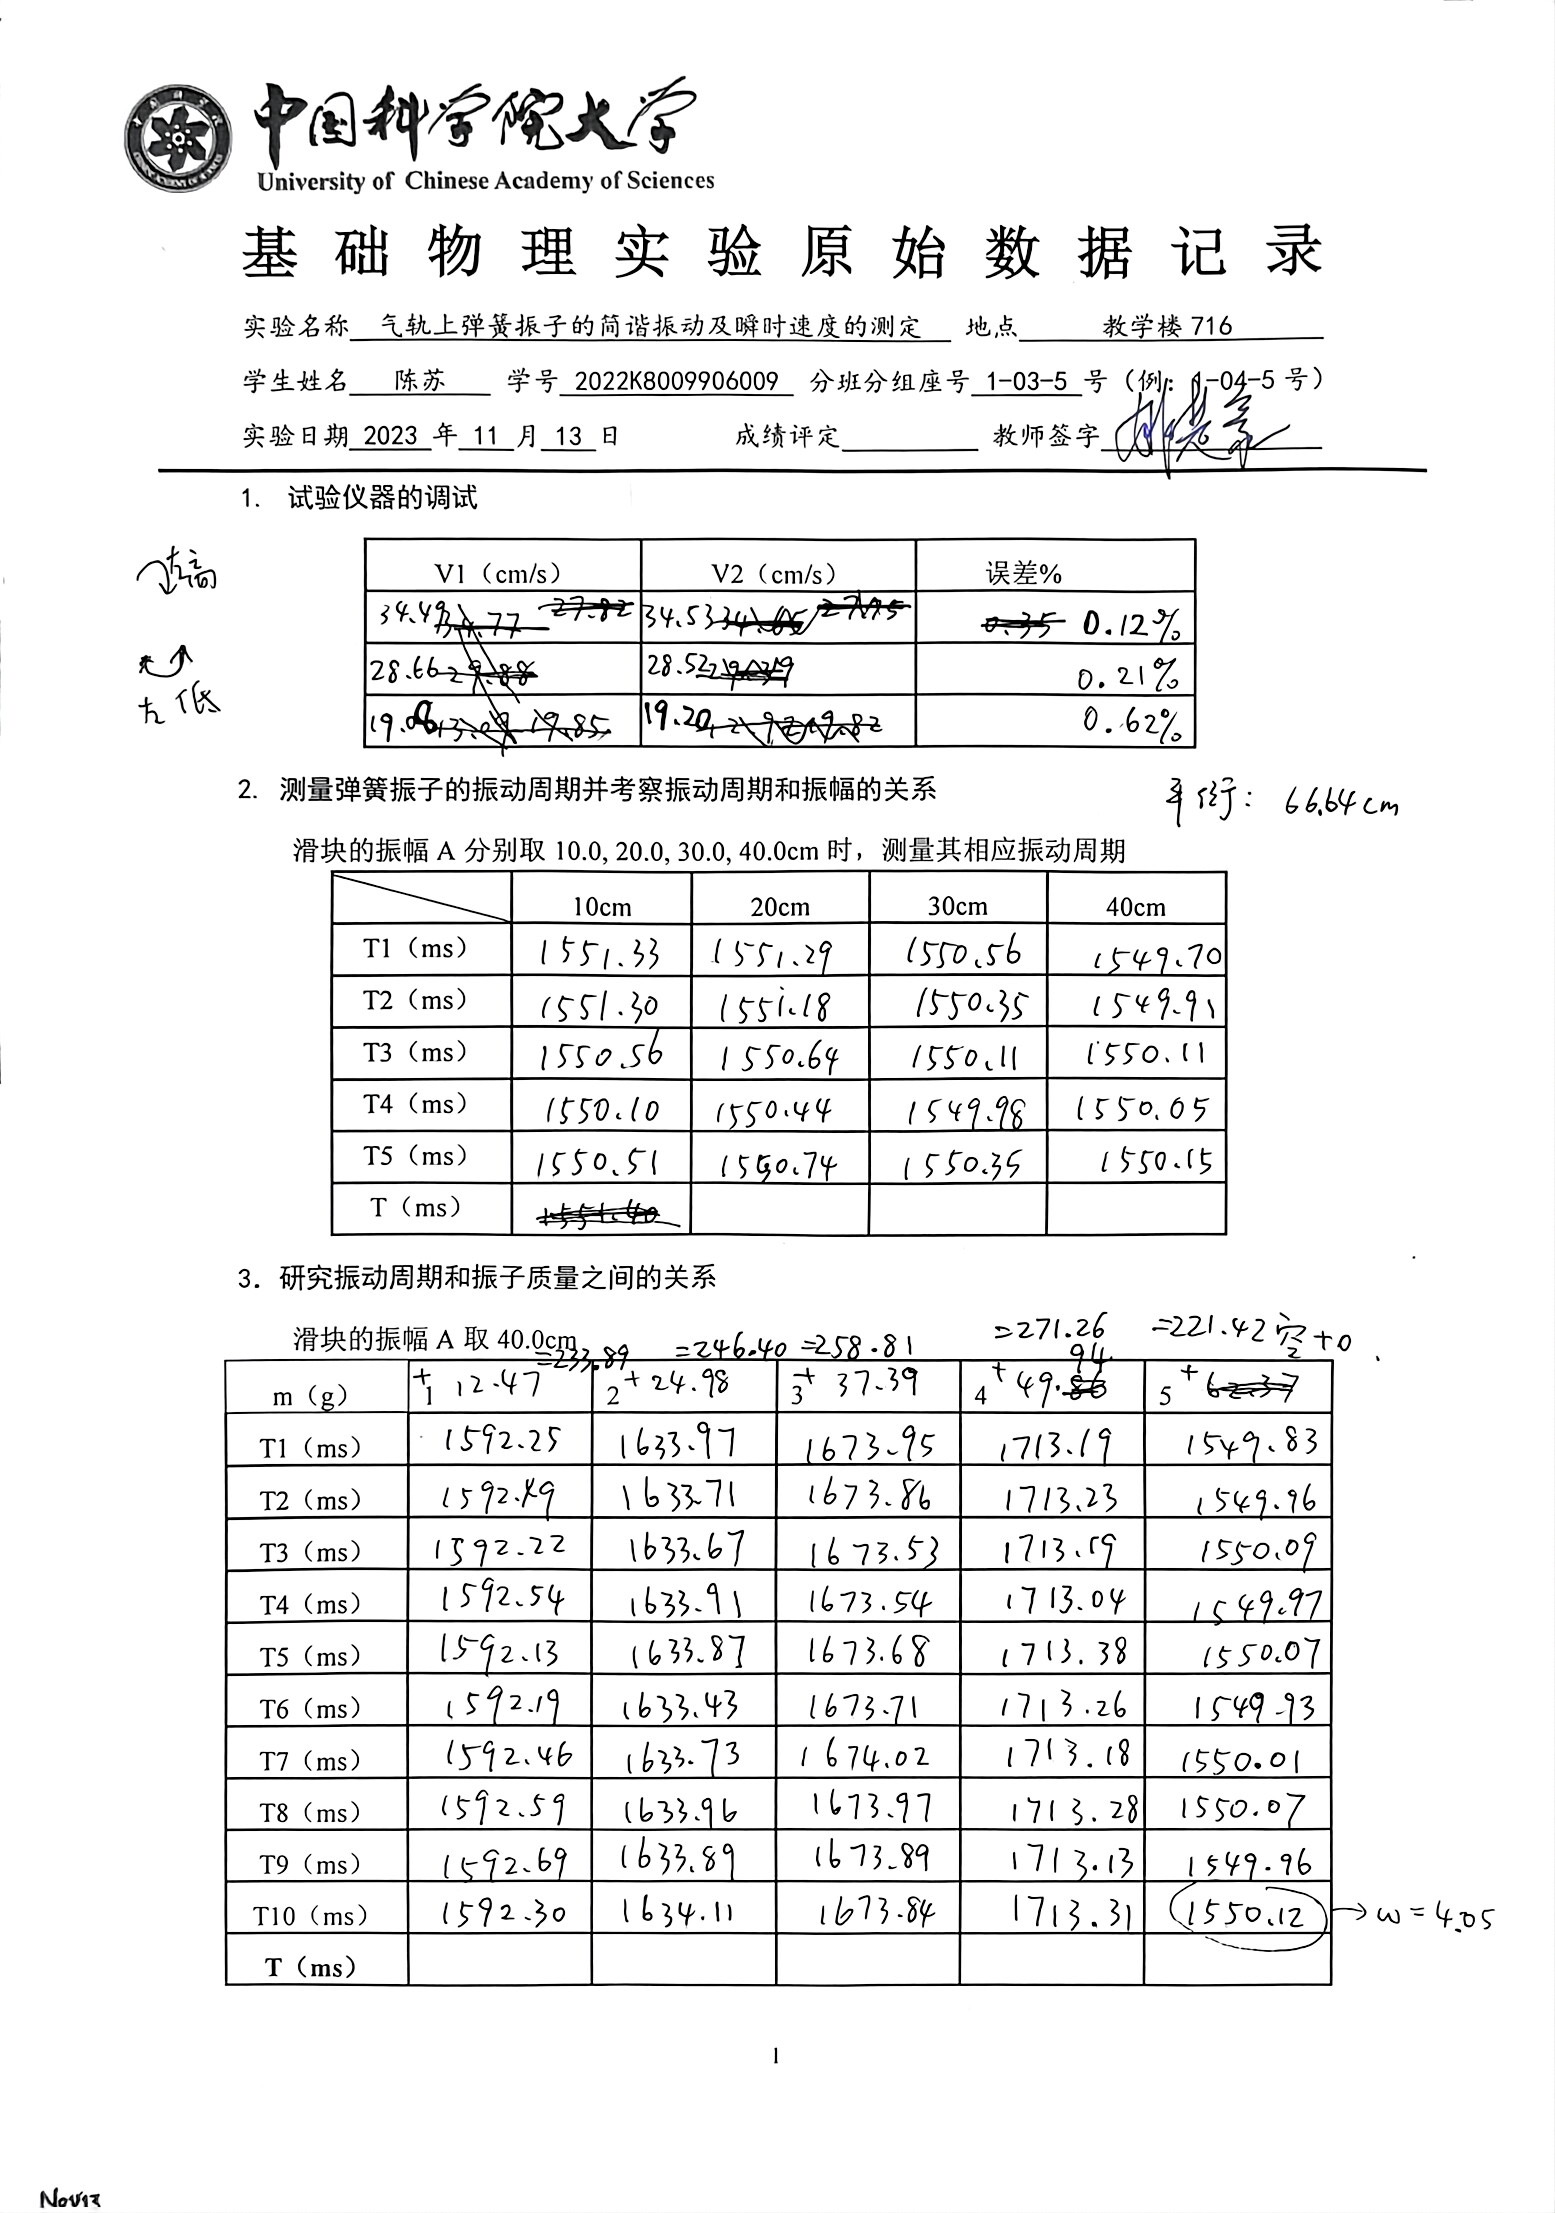 中国科学院大学
University of Chinese Academy of Sciences
基础物理实验原始数据记录
实验名称 气轨上弹簧振子的简谐振动及瞬时速度的测定 地点 教学楼 716
学生姓名 陈苏 学号 2022K8009906009 分班分组座号 1-03-5 号（例：1-04-5 号）
实验日期 2023 年 11 月 13 日 成绩评定 教师签字
1. 试验仪器的调试
左高
左低
V1（cm/s） V2（cm/s） 误差%
34.49 34.53 0.12%
28.66 28.52 0.21%
19.08 19.20 0.62%
2. 测量弹簧振子的振动周期并考察振动周期和振幅的关系
平衡: 66.64cm
滑块的振幅 A 分别取 10.0, 20.0, 30.0, 40.0cm 时，测量其相应振动周期
10cm 20cm 30cm 40cm
T1（ms） 1551.33 1551.29 1550.56 1549.70
T2（ms） 1551.30 1551.18 1550.35 1549.91
T3（ms） 1550.56 1550.64 1550.11 1550.11
T4（ms） 1550.10 1550.44 1549.98 1550.05
T5（ms） 1550.51 1550.74 1550.35 1550.15
T（ms） 1551.40
3. 研究振动周期和振子质量之间的关系
滑块的振幅 A 取 40.0cm
=233.89 =246.40 =258.81 =271.26 =221.42 空+0
m（g） 1 +12.47 2 +24.98 3 +37.39 4 +49.94 5 +62.37
T1（ms） 1592.25 1633.97 1673.95 1713.19 1549.83
T2（ms） 1592.49 1633.71 1673.86 1713.23 1549.96
T3（ms） 1592.22 1633.67 1673.53 1713.19 1550.09
T4（ms） 1592.54 1633.91 1673.54 1713.04 1549.97
T5（ms） 1592.13 1633.87 1673.68 1713.38 1550.07
T6（ms） 1592.19 1633.43 1673.71 1713.26 1549.93
T7（ms） 1592.46 1633.73 1674.02 1713.18 1550.01
T8（ms） 1592.59 1633.96 1673.97 1713.28 1550.07
T9（ms） 1592.69 1633.89 1673.89 1713.13 1549.96
T10（ms） 1592.30 1634.11 1673.84 1713.31 1550.12 → ω = 4.05
T（ms）
1
Nov13